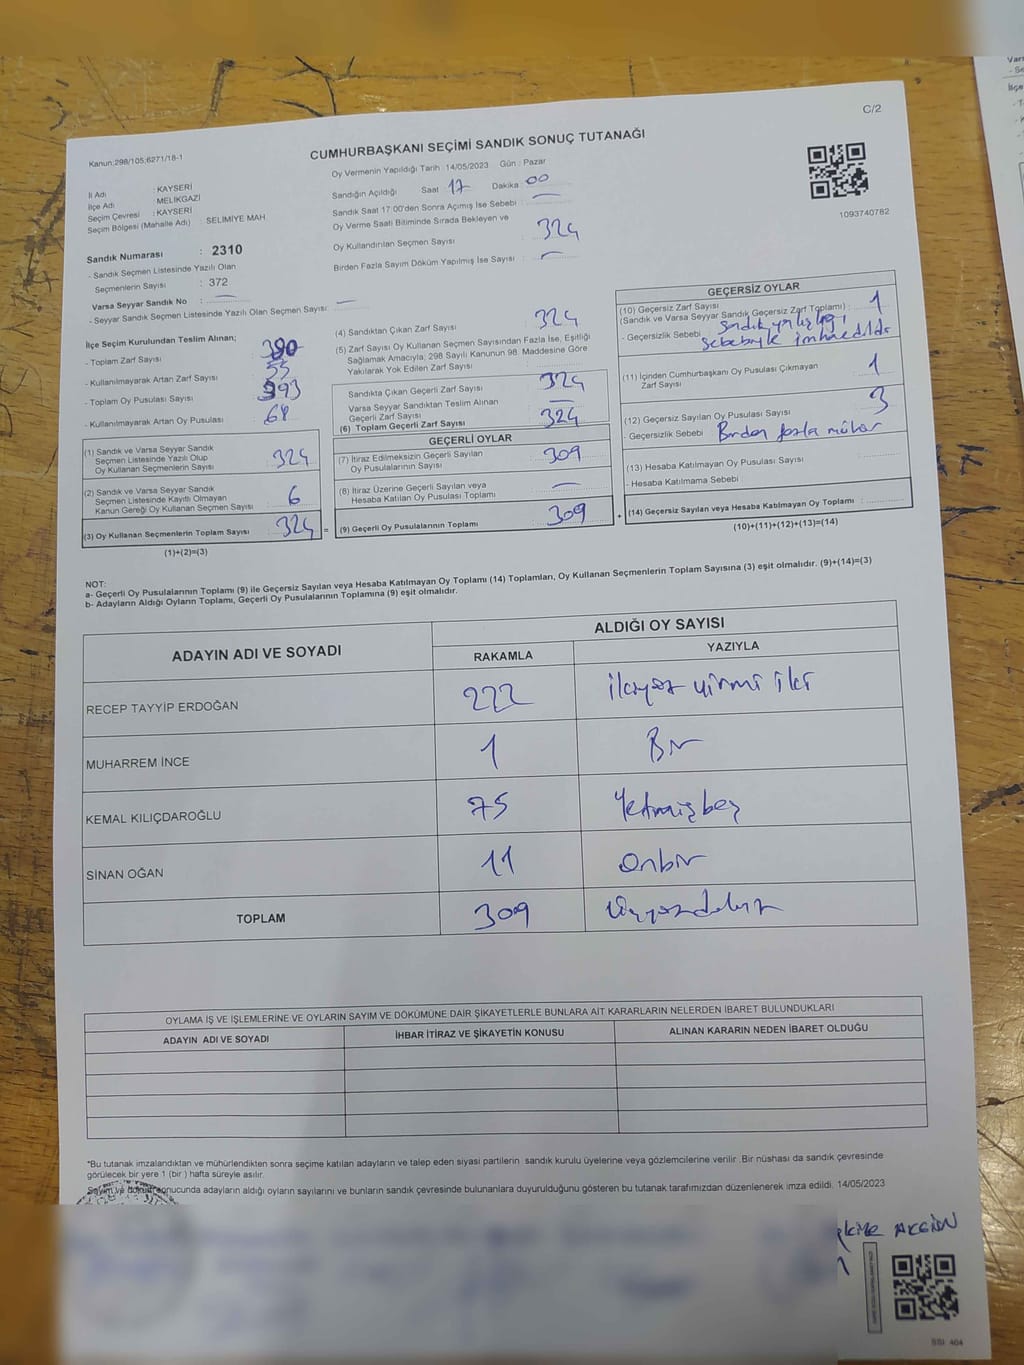 C/2
Kanun:298/105;6271/18-1
CUMHURBAŞKANI SEÇİMİ SANDIK SONUÇ TUTANAĞI
Oy Vermenin Yapıldığı Tarih :14/05/2023 Gün : Pazar
İl Adı : KAYSERİ
İlçe Adı MELİKGAZİ
Seçim Çevresi : KAYSERİ
Seçim Bölgesi (Mahalle Adı) : SELİMİYE MAH.
Sandığın Açıldığı Saat 17 Dakika 00
Sandık Saat 17:00'den Sonra Açımış İse Sebebi :
Oy Verme Saati Bitiminde Sırada Bekleyen ve
Oy Kullandırılan Seçmen Sayısı : 324
Birden Fazla Sayım Döküm Yapılmış İse Sayısı : —
1093740782
Sandık Numarası : 2310
- Sandık Seçmen Listesinde Yazılı Olan
Seçmenlerin Sayısı : 372
Varsa Seyyar Sandık No : —
- Seyyar Sandık Seçmen Listesinde Yazılı Olan Seçmen Sayısı: —
İlçe Seçim Kurulundan Teslim Alınan;
- Toplam Zarf Sayısı
- Kullanılmayarak Artan Zarf Sayısı 55
- Toplam Oy Pusulası Sayısı : 393
- Kullanılmayarak Artan Oy Pusulası :
(1) Sandık ve Varsa Seyyar Sandık
Seçmen Listesinde Yazılı Olup
Oy Kullanan Seçmenlerin Sayısı : 324
(2) Sandık ve Varsa Seyyar Sandık
Seçmen Listesinde Kayıtlı Olmayan
Kanun Gereği Oy Kullanan Seçmen Sayısı : 6
(3) Oy Kullanan Seçmenlerin Toplam Sayısı : 324 =
(1)+(2)=(3)
(4) Sandıktan Çıkan Zarf Sayısı : 324
(5) Zarf Sayısı Oy Kullanan Seçmen Sayısından Fazla İse, Eşitliği
Sağlamak Amacıyla; 298 Sayılı Kanunun 98. Maddesine Göre
Yakılarak Yok Edilen Zarf Sayısı
Sandıkta Çıkan Geçerli Zarf Sayısı : 324
Varsa Seyyar Sandıktan Teslim Alınan
Geçerli Zarf Sayısı : —
(6) Toplam Geçerli Zarf Sayısı : 324
GEÇERLİ OYLAR
(7) İtiraz Edilmeksizin Geçerli Sayılan
Oy Pusulalarının Sayısı : 309
(8) İtiraz Üzerine Geçerli Sayılan veya
Hesaba Katılan Oy Pusulası Toplamı : —
(9) Geçerli Oy Pusulalarının Toplamı : 309 +
GEÇERSİZ OYLAR
(10) Geçersiz Zarf Sayısı
(Sandık ve Varsa Seyyar Sandık Geçersiz Zarf Toplamı) : 1
- Geçersizlik Sebebi :
(11) İçinden Cumhurbaşkanı Oy Pusulası Çıkmayan
Zarf Sayısı : 1
(12) Geçersiz Sayılan Oy Pusulası Sayısı : 3
- Geçersizlik Sebebi Birden fazla mühür
(13) Hesaba Katılmayan Oy Pusulası Sayısı
- Hesaba Katılmama Sebebi
(14) Geçersiz Sayılan veya Hesaba Katılmayan Oy Toplamı :
(10)+(11)+(12)+(13)=(14)
NOT:
a- Geçerli Oy Pusulalarının Toplamı (9) ile Geçersiz Sayılan veya Hesaba Katılmayan Oy Toplamı (14) Toplamları, Oy Kullanan Seçmenlerin Toplam Sayısına (3) eşit olmalıdır. (9)+(14)=(3)
b- Adayların Aldığı Oyların Toplamı, Geçerli Oy Pusulalarının Toplamına (9) eşit olmalıdır.
ADAYIN ADI VE SOYADI ALDIĞI OY SAYISI
RAKAMLA YAZIYLA
RECEP TAYYİP ERDOĞAN 222 ikiyüz yirmi iki
MUHARREM İNCE 1 Bir
KEMAL KILIÇDAROĞLU 75 Yetmişbeş
SİNAN OĞAN 11 Onbir
TOPLAM 309 üçyüzdokuz
OYLAMA İŞ VE İŞLEMLERİNE VE OYLARIN SAYIM VE DÖKÜMÜNE DAİR ŞİKAYETLERLE BUNLARA AİT KARARLARIN NELERDEN İBARET BULUNDUKLARI
ADAYIN ADI VE SOYADI İHBAR İTİRAZ VE ŞİKAYETİN KONUSU ALINAN KARARIN NEDEN İBARET OLDUĞU
*Bu tutanak imzalandıktan ve mühürlendikten sonra seçime katılan adayların ve talep eden siyasi partilerin sandık kurulu üyelerine veya gözlemcilerine verilir. Bir nüshası da sandık çevresinde
görülecek bir yere 1 (bir) hafta süreyle asılır.
Sayım ve döküm sonucunda adayların aldığı oyların sayılarını ve bunların sandık çevresinde bulunanlara duyurulduğunu gösteren bu tutanak tarafımızdan düzenlenerek imza edildi. 14/05/2023
SSI: 464